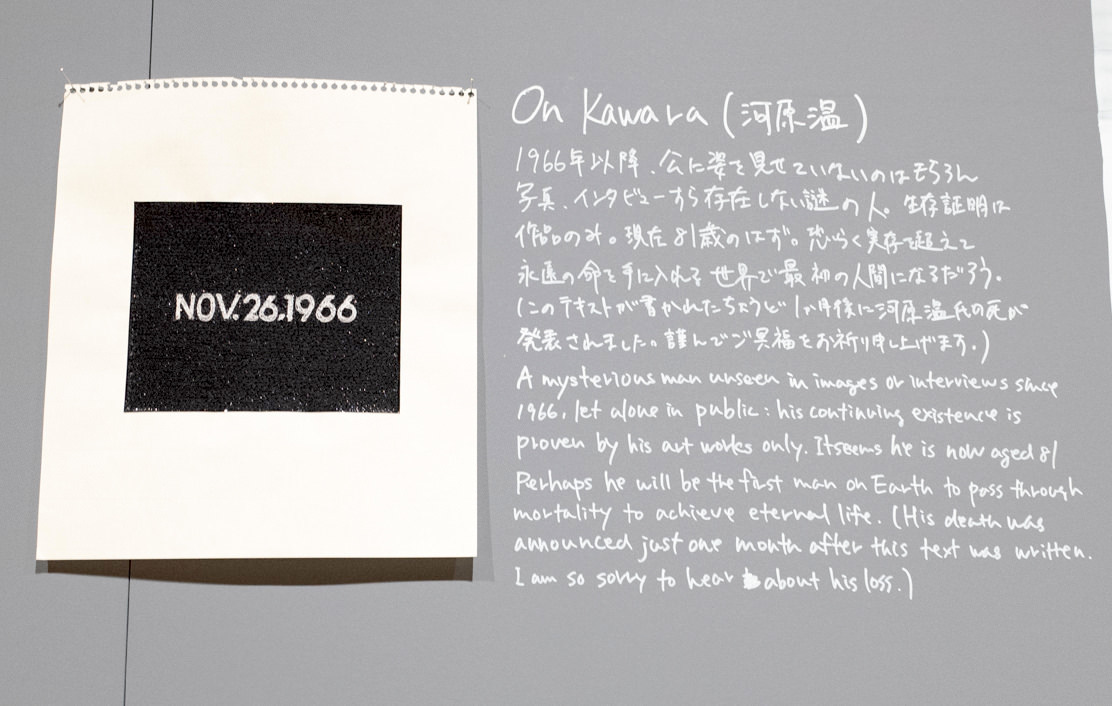 NOV.26.1966
On Kawara (河原温)
1966年以降、公に姿を見せていないのはもちろん
写真、インタビューすら存在しない謎の人。生存証明は
作品のみ。現在81歳のはず。恐らく実存を超えて
永遠の命を手に入れる世界で最初の人間になるだろう。
(このテキストが書かれたちょうど1か月後に河原温氏の死が
発表されました。謹んでご冥福をお祈り申し上げます。)
A mysterious man unseen in images or interviews since
1966, let alone in public: his continuing existence is
proven by his art works only. It seems he is now aged 81
Perhaps he will be the first man on Earth to pass through
mortality to achieve eternal life. (His death was
announced just one month after this text was written.
I am so sorry to hear about his loss.)